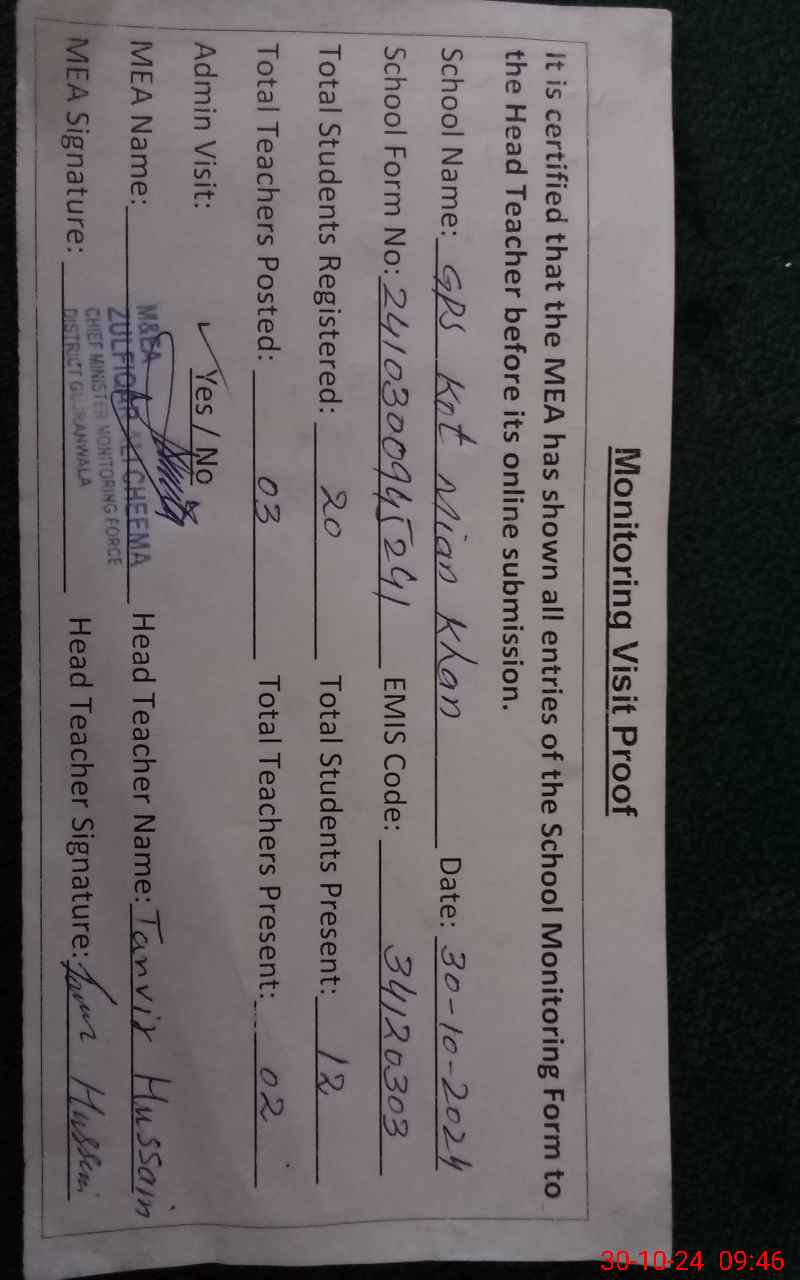 Monitoring Visit Proof
It is certified that the MEA has shown all entries of the School Monitoring Form to
the Head Teacher before its online submission.
School Name: GPS Kot Mian Khan Date: 30-10-2024
School Form No: 2410300945241 EMIS Code: 34120303
Total Students Registered: 20 Total Students Present: 12
Total Teachers Posted: 03 Total Teachers Present: 02
Admin Visit: ✓ Yes / No
M&EA
MEA Name: ZULFIQAR ALI CHEEMA Head Teacher Name: Tanvir Hussain
CHIEF MINISTER MONITORING FORCE
MEA Signature: DISTRICT GUJRANWALA Head Teacher Signature: Hussain
30-10-24 09:46